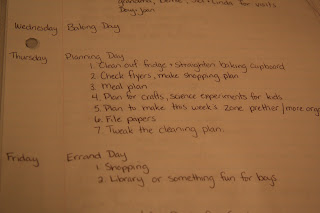 grandma, see Linda for visits
Wednesday Baking Day
Thursday Planning Day
1. Clean out fridge + straighten baking cupboard
2. Check flyers, make shopping plan
3. Meal plan
4. Plan for crafts, science experiments for kids
5. Plan to make this week's zone prettier / more
6. File papers
7. Tweak the cleaning plan.
Friday Errand Day
1. Shopping
2. Library or something fun for boys